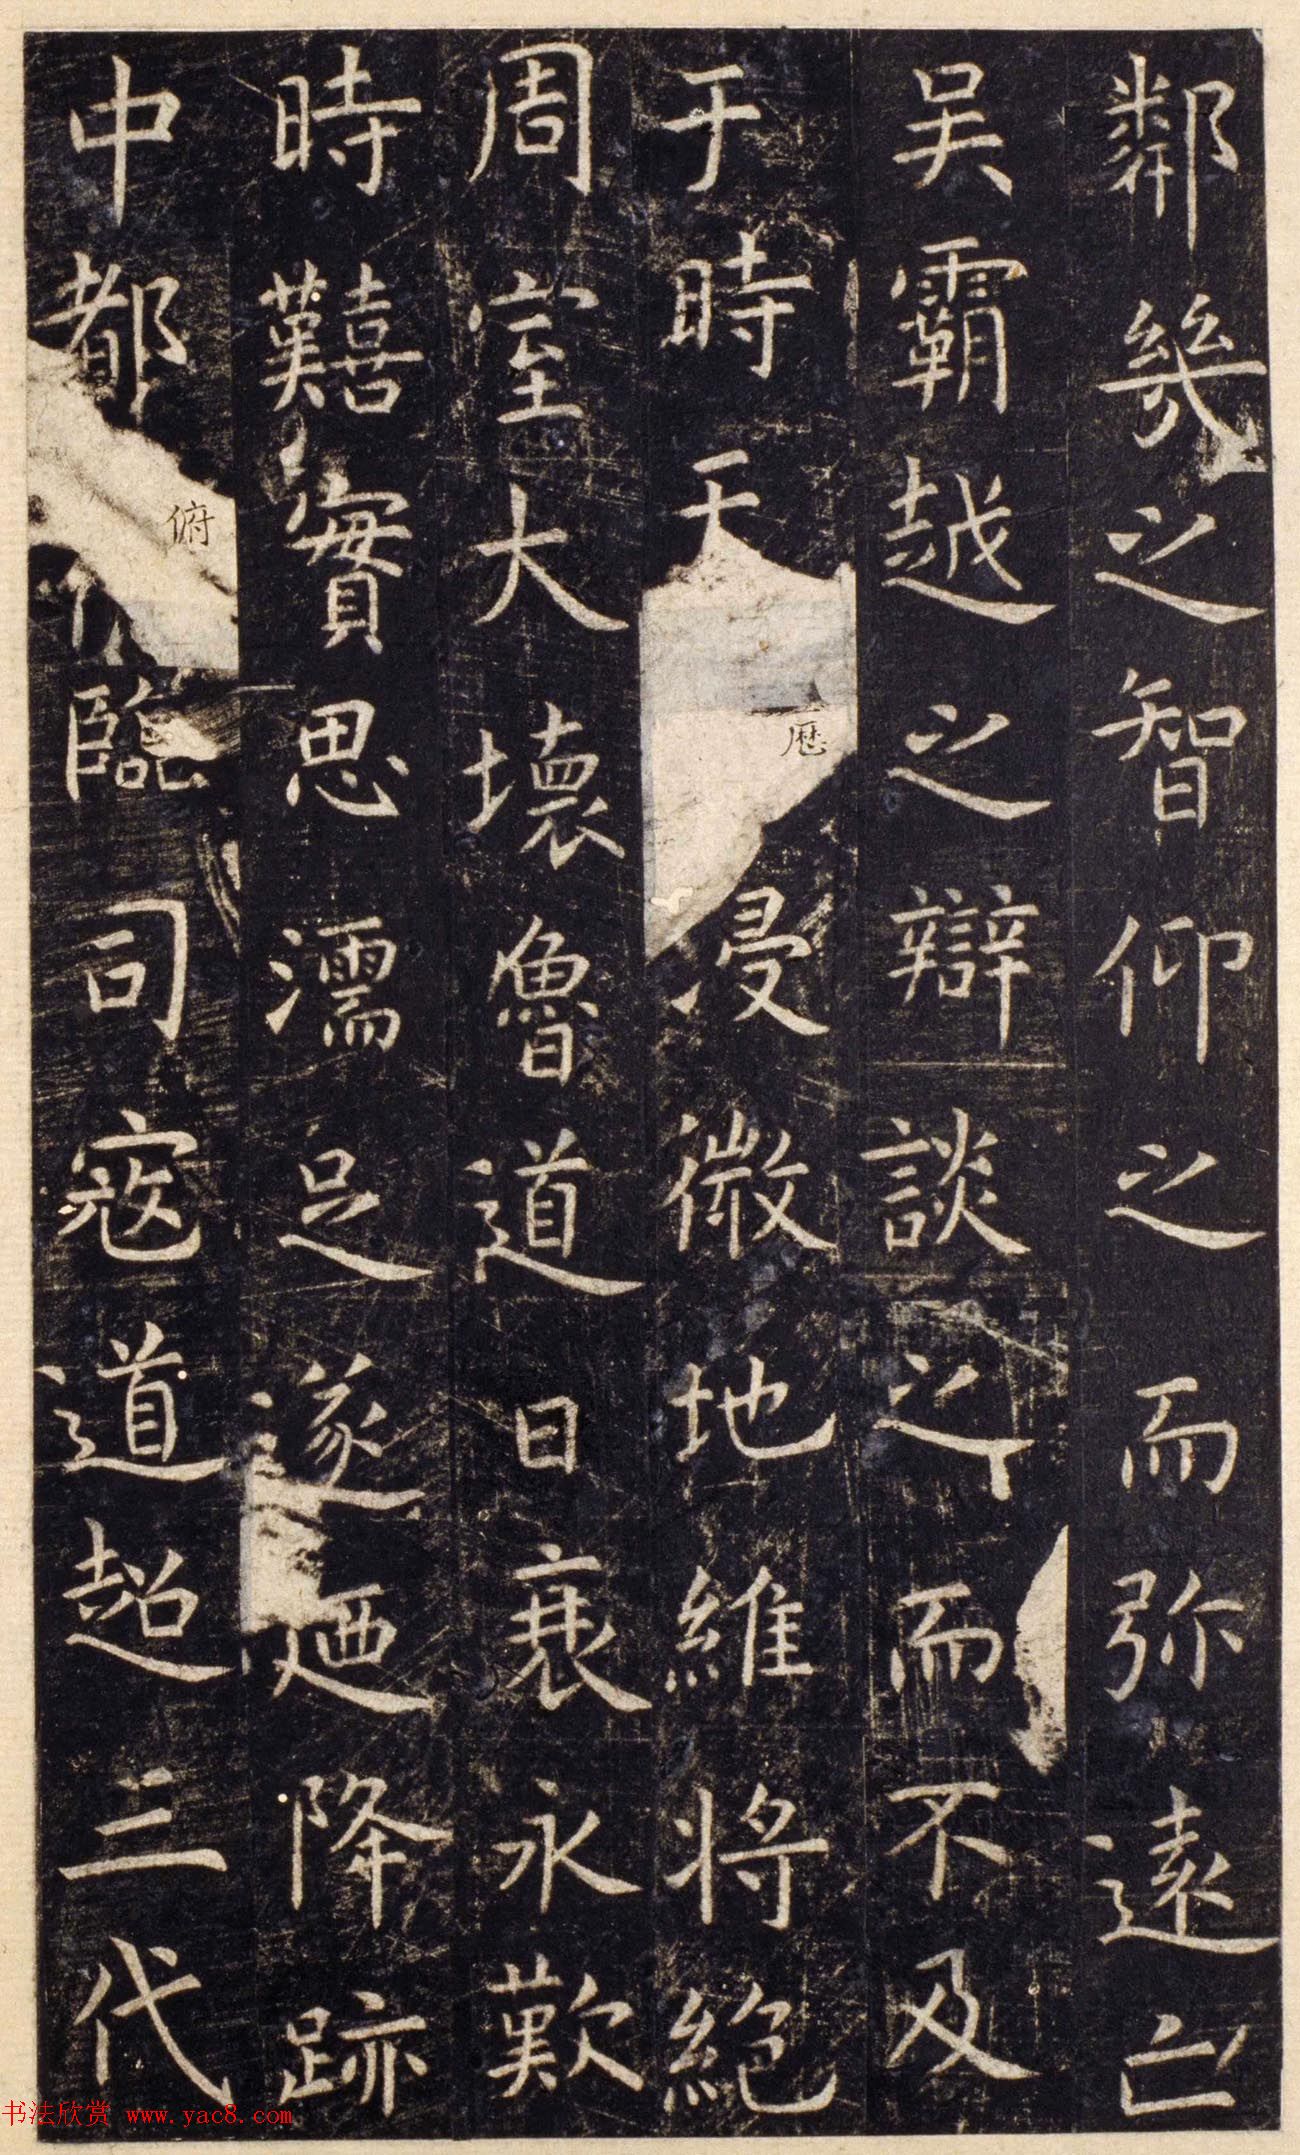 鄰幾之智仰之而弥遠亡
吴霸越之辯談之而不及
于時天歷浸微地維将絕
周室大壞魯道日衰永歎
時囏實思濡足遂迺降跡
中都俯臨司寇道超三代
书法欣赏 www.yac8.com